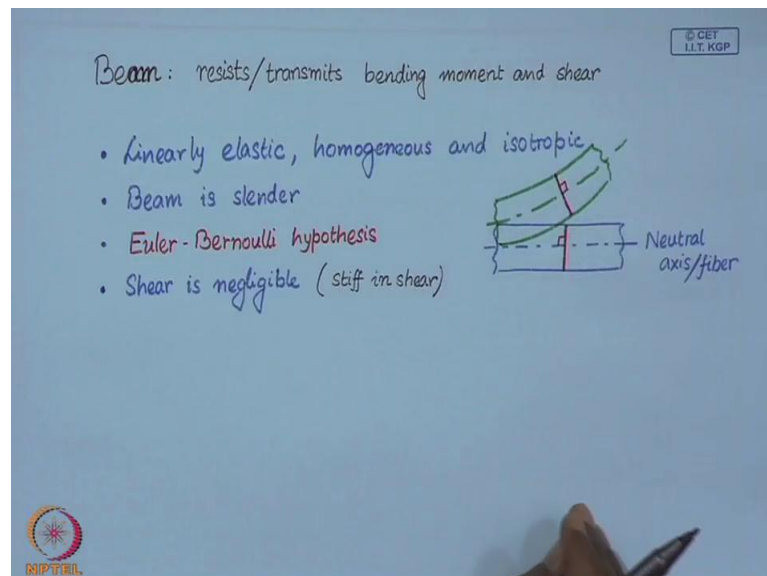 © CET
I.I.T. KGP
Beam: resists/transmits bending moment and shear
• Linearly elastic, homogeneous and isotropic
• Beam is slender
• Euler-Bernoulli hypothesis
• Shear is negligible (stiff in shear)
Neutral
axis/fiber
NPTEL